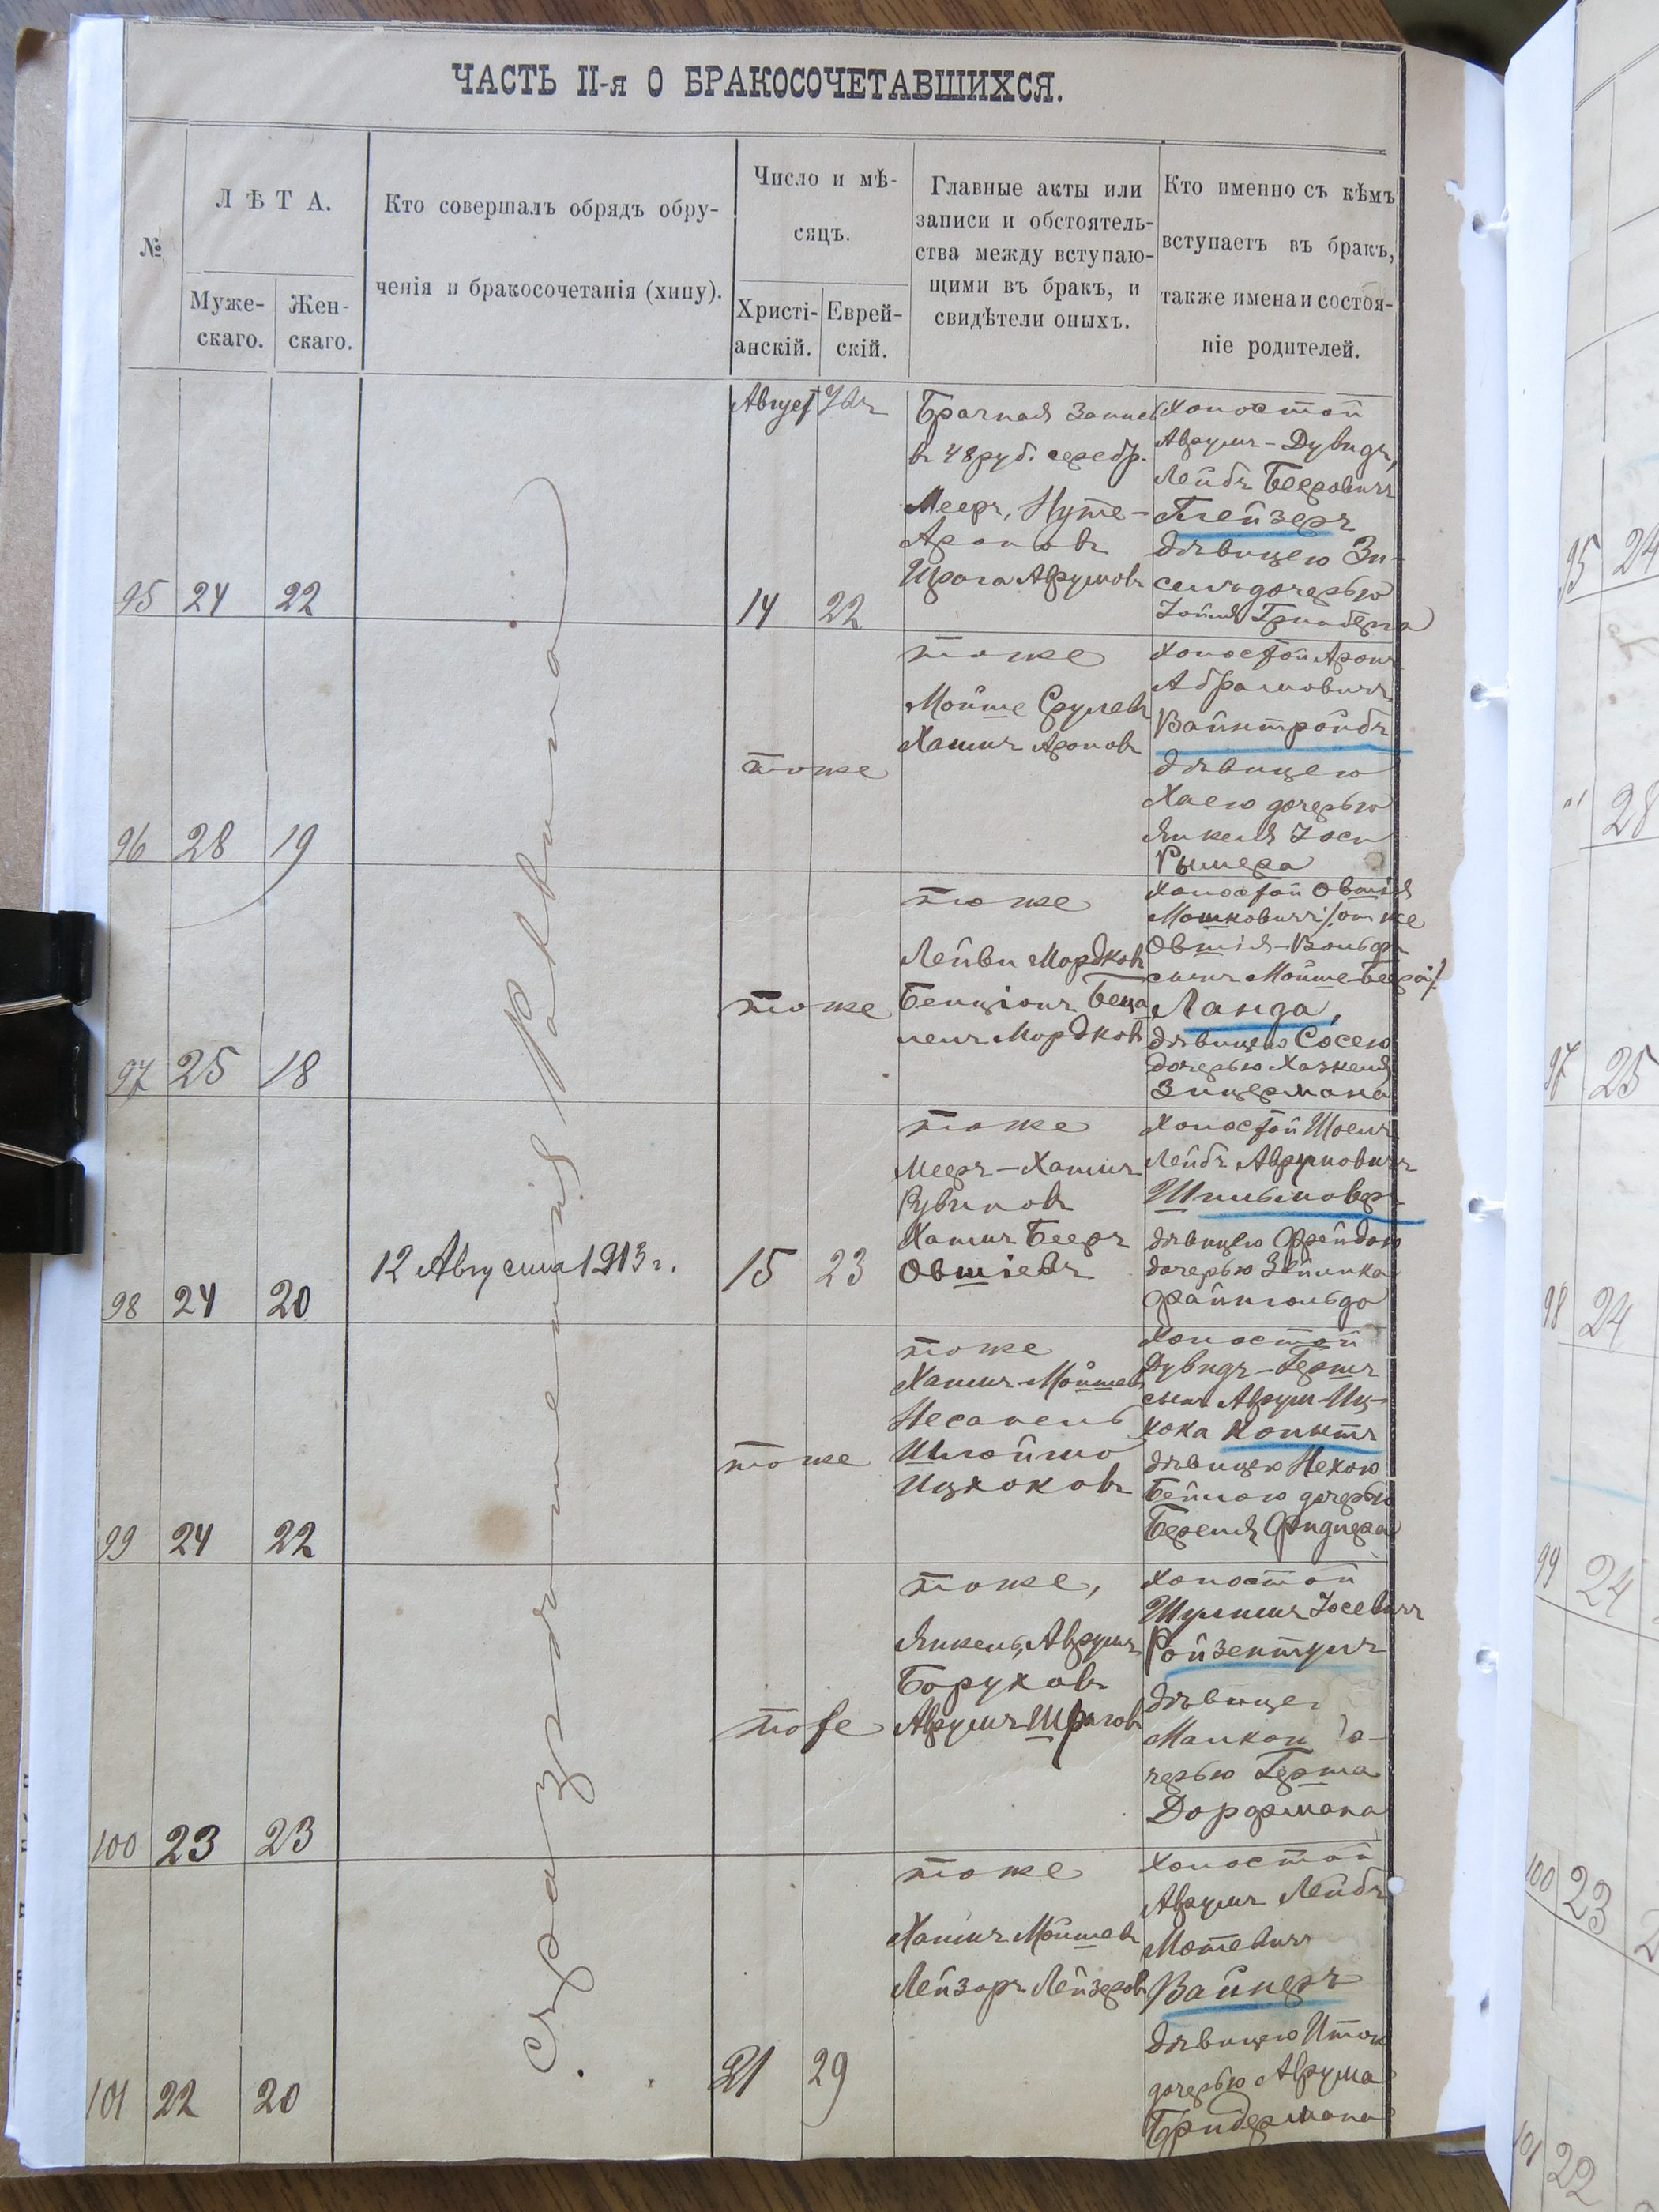 ЧАСТЬ II-я О БРАКОСОЧЕТАВШИХСЯ.
№
ЛѢТА.
Муже-
скаго.
Жен-
скаго.
Кто совершалъ обрядъ обру-
ченія и бракосочетанія (хипу).
Число и мѣ-
сяцъ.
Христі-
анскій.
Еврей-
скій.
Главные акты или
записи и обстоятель-
ства между вступаю-
щими въ бракъ, и
свидѣтели оныхъ.
Кто именно съ кѣмъ
вступаетъ въ бракъ,
также имена и состоя-
ніе родителей.
Съ разрѣшенія Раввина
12 Августа 1913 г.
95 24 22
Август
14 22
Брачная запись
въ 48 руб. серебр.
Мееръ, Нута-
Ароновъ
Авруmовъ
Холостой
Аврумъ-Дувидъ,
Лейбъ Беровичъ
Глейзеръ
дѣвицею Зи-
сель дочерью
Гринберга
96 28 19
тоже
тоже
Мойше Срулевъ
Хаимъ Ароновъ
Холостой Аронъ
Абрамовичъ
Вайнтройбъ
дѣвицею
Хаею дочерью
Янкеля Іоси
Рымера
97 25 18
тоже
тоже
Лейви Мордковъ
Бенціонъ Беца
лель Мордковъ
Холостой Овшія
Мошковичъ /он же
Овшія-Вольфъ
сынъ Мойше-Бера/
Ланда,
дѣвицею Сосею
дочерью Хаскеля
Зицермана
98 24 20
15 23
тоже
Мееръ-Хаимъ
Рувиновъ
Хаимъ Бееръ
Овшіевъ
Холостой Шоелъ
Лейбъ Аврумовичъ
дѣвицею Фрейдою
дочерью Зейлика
Файнгольда
99 24 22
тоже
тоже
Хаимъ Мойшевъ
Несанель
Шлоймо
Ицхоковъ
Холостой
Дувидъ-Гершъ
сынъ Аврум-Иц-
хока Копытъ
дѣвицею Нехою
Бейлою дочерью
Береля Фидлера
100 23 23
тоже
тоже,
Янкель, Аврумъ
Боруховъ
Аврумъ Шраговъ
Холостой
Шулимъ Іосевичъ
Ройзентулъ
дѣвицею
Малкою до-
черью Герша
Дорфмана
101 22 20
21 29
тоже
Хаимъ Мойшевъ
Лейзоръ Лейзеровъ
Холостой
Аврумъ Лейбъ
Мотевичъ
Вайнеръ
дѣвицею Итою
дочерью Аврума
Бридермана
95 24
" 28
97 25
98 24
99 24
100 23 2
101 22